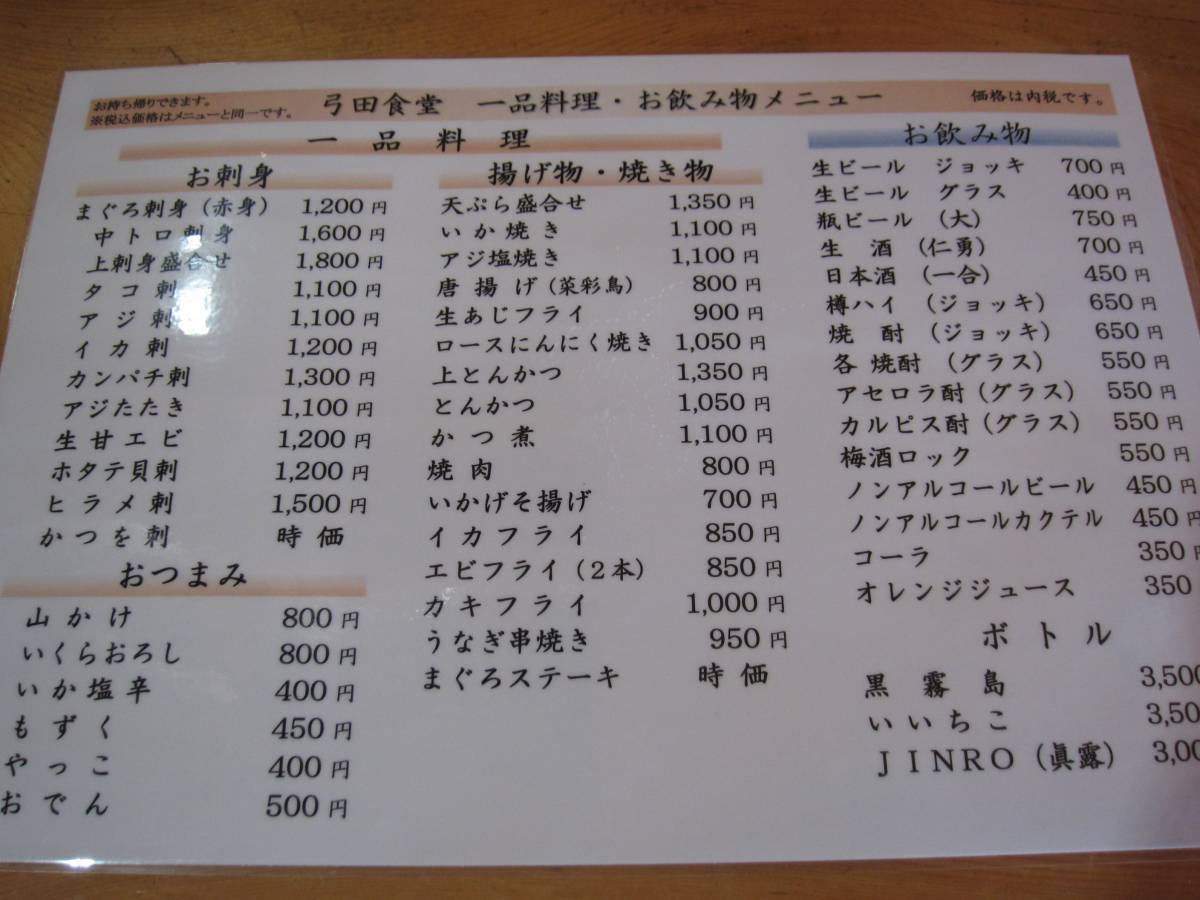 お持ち帰りできます。
※税込価格はメニューと同一です。
弓田食堂 一品料理・お飲み物メニュー
価格は内税です。
一品料理
お刺身
まぐろ刺身（赤身） 1,200円
中トロ刺身 1,600円
上刺身盛合せ 1,800円
タコ刺 1,100円
アジ刺 1,100円
イカ刺 1,200円
カンパチ刺 1,300円
アジたたき 1,100円
生甘エビ 1,200円
ホタテ貝刺 1,200円
ヒラメ刺 1,500円
かつを刺 時価
おつまみ
山かけ 800円
いくらおろし 800円
いか塩辛 400円
もずく 450円
やっこ 400円
おでん 500円
揚げ物・焼き物
天ぷら盛合せ 1,350円
いか焼き 1,100円
アジ塩焼き 1,100円
唐揚げ（菜彩鳥） 800円
生あじフライ 900円
ロースにんにく焼き 1,050円
上とんかつ 1,350円
とんかつ 1,050円
かつ煮 1,100円
焼肉 800円
いかげそ揚げ 700円
イカフライ 850円
エビフライ（２本） 850円
カキフライ 1,000円
うなぎ串焼き 950円
まぐろステーキ 時価
お飲み物
生ビール ジョッキ 700円
生ビール グラス 400円
瓶ビール （大） 750円
生酒 （仁勇） 700円
日本酒 （一合） 450円
樽ハイ （ジョッキ） 650円
焼酎 （ジョッキ） 650円
各焼酎 （グラス） 550円
アセロラ酎（グラス） 550円
カルピス酎（グラス） 550円
梅酒ロック 550円
ノンアルコールビール 450円
ノンアルコールカクテル 450円
コーラ 350円
オレンジジュース 350
ボトル
黒霧島 3,500
いいちこ 3,50
ＪＩＮＲＯ（眞露） 3,00